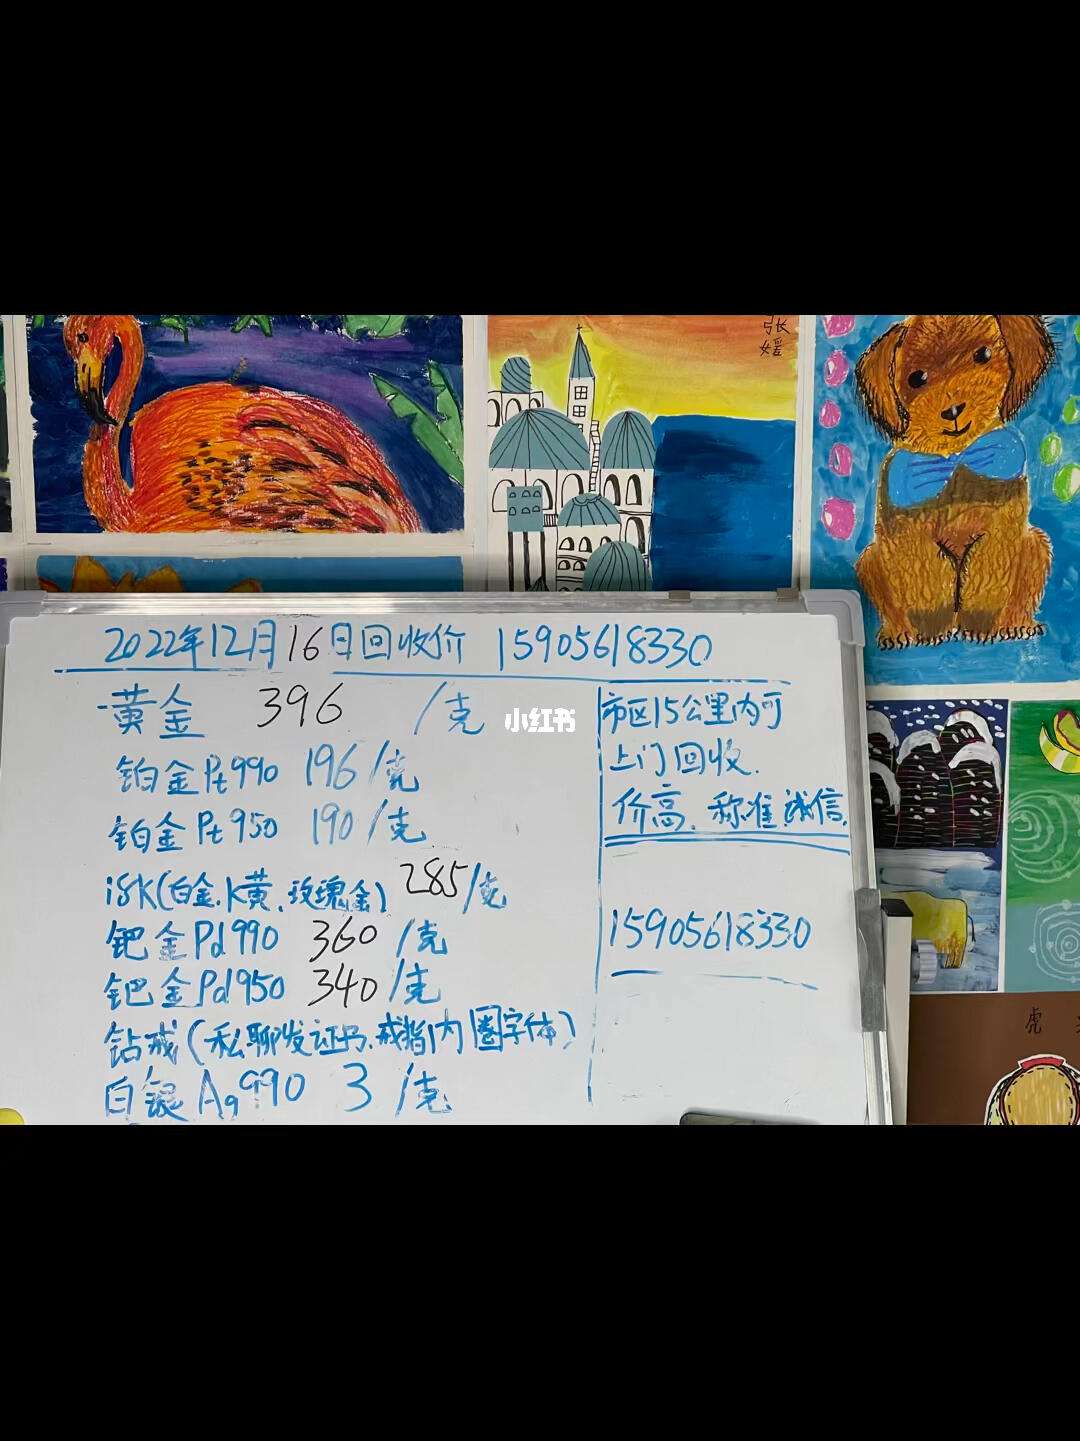 张
媛
2022年12月16日回收价 15905618330
黄金 396 /克
铂金Pt990 196/克
铂金Pt950 190/克
18K(白金.K黄.玫瑰金) 285/克
钯金Pd990 360/克
钯金Pd950 340/克
钻戒(私聊发证书.戒指内圈字体)
白银Ag990 3/克
小红书
市区15公里内可
上门回收.
价高.称准.诚信.
15905618330
虎